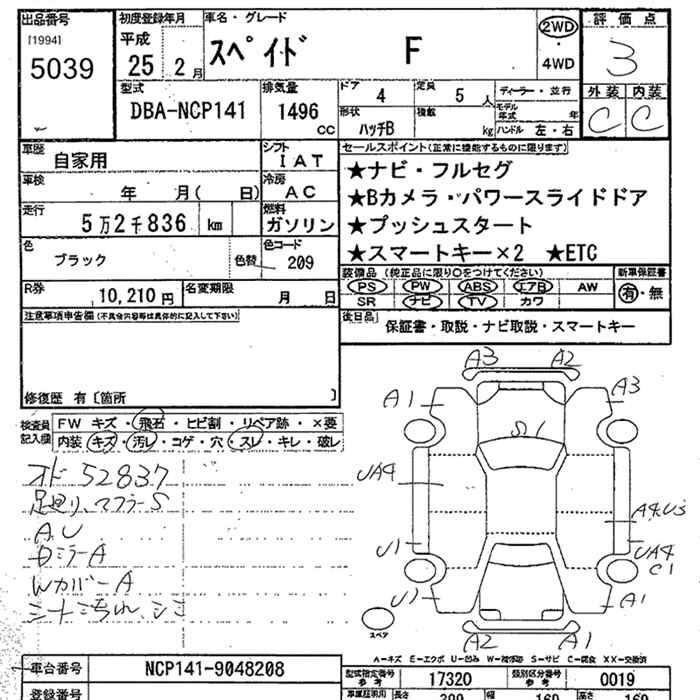 出品番号 初度登録年月 車名・グレード 評価点
[1994] 平成 スペイド F 2WD 3
5039 25 2月 4WD 外装 内装
型式 排気量 ドア 4 定員 5人 ディーラー・並行 C C
DBA-NCP141 1496 cc 形状 ハッチB 積載 kg モデル年式 年
ハンドル 左・右
車歴 自家用 シフト IAT セールスポイント(正常に機能するものに限ります)
車検 年 月( 日) 冷房 AC ★ナビ・フルセグ
走行 5万2千836 km 燃料 ガソリン ★Bカメラ・パワースライドドア
★プッシュスタート
色 ブラック 色替 色コード 209 ★スマートキー×2 ★ETC
R券 10,210円 名変期限 月 日 装備品(純正品に限り○をつけてください) 新車保証書
PS PW ABS エアB AW 有・無
SR ナビ TV カワ
注意事項申告欄(不具合内容等は具体的に記入して下さい) 後日品 保証書・取説・ナビ取説・スマートキー
修復歴 有〔箇所 〕
検査員記入欄 FW キズ・飛石・ヒビ割・リペア跡・×要
内装 キズ・汚レ・コゲ・穴・スレ・キレ・破レ
オド 52837
足廻り、マフラーS
A,U
DミラーA
WカバーA
A3 A2
A1 A3
S1
UA4
A4,U3
U1 UA4
C1
U1 A1
スペア
A2 A1
A-キズ E-エクボ U-凹み W-補修跡 S-サビ C-腐食 XX-交換済
車台番号 NCP141-9048208 型式指定番号 参考 17320 類別区分番号 参考 0019
登録番号 長さ 399 幅 169 高さ 169